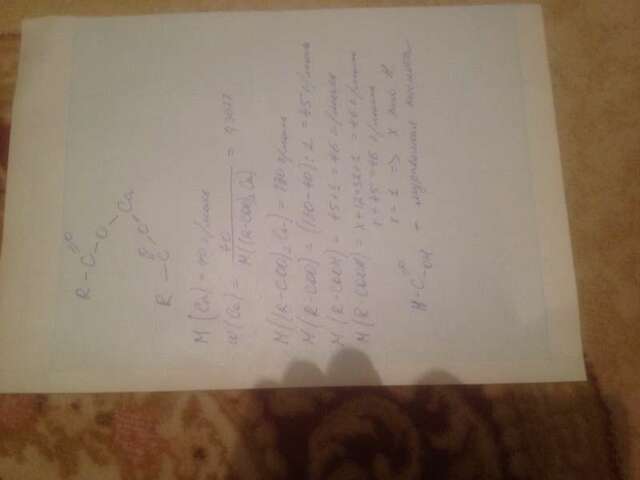 R – C =O – O – Ca
R – C =O – O
M (Ca) = 40 г/моль
w (Ca) = 40 / M((R-COO)₂Ca) = 0,3077
M((R-COO)₂Ca) = 130 г/моль
M(R-COO) = (130-40):2 = 45 г/моль
M(R-COOH) = 45+1 = 46 г/моль
M(R-COOH) = x+12+32+1 = 46 г/моль
x+45=46 г/моль
x = 1 => x это H
H-C =O – OH – муравьиная кислота